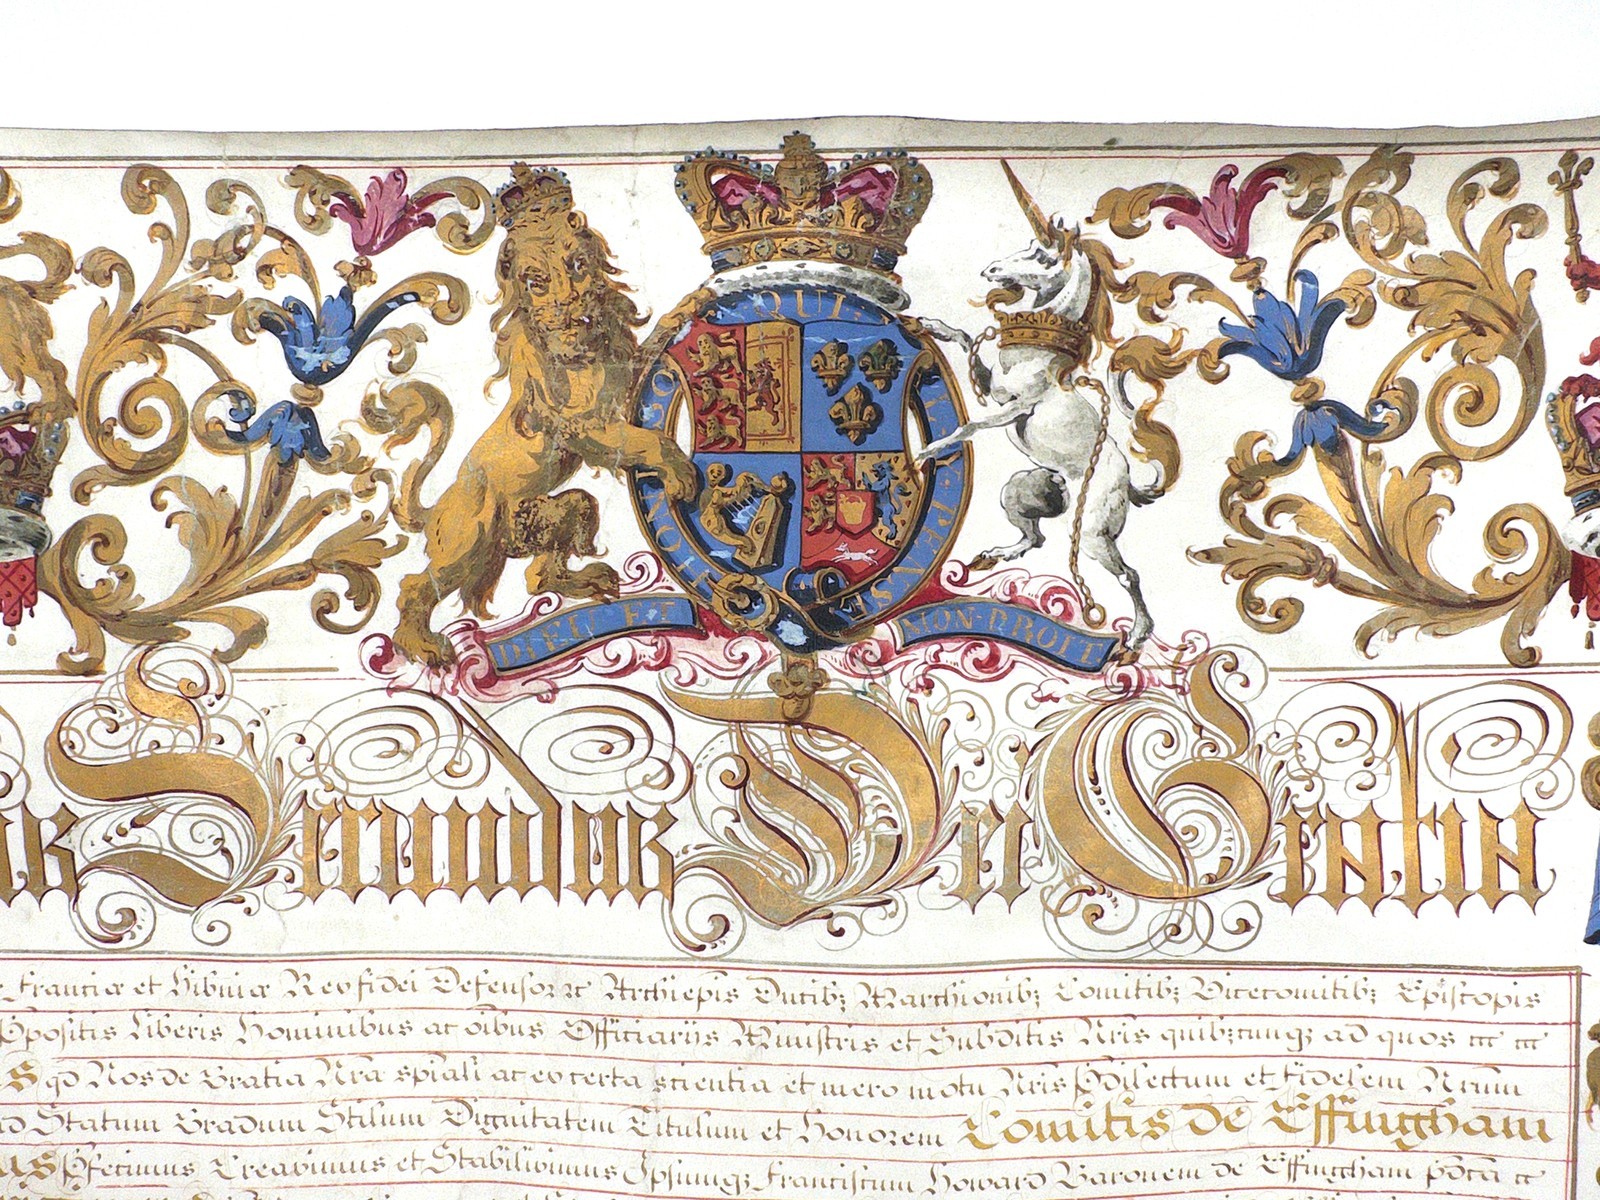 QUI
HONI
SE
DIEU ET
MON DROIT
Secundus Dei Gratia
Franciæ et Hibniæ Rex fidei Defensor &c Archiepis Ducibz Marchionibz Comitibz Vicecomitibz Episcopis
Ppositis Liberis Hominibus ac oibus Officiarijs Ministris et Subditis Nris quibzcunqz ad quos
qd Nos de Gratia Nra spiali ac ex certa scientia et mero motu Nris Pdilectum et Fidelem Nrum
ad Statum Gradum Stilum Dignitatem Titulum et Honorem Comitis De Effingham
Pfecimus Creavimus et Stabilivimus Ipsumqz Franciscum Howard Baronem de Effingham pdca